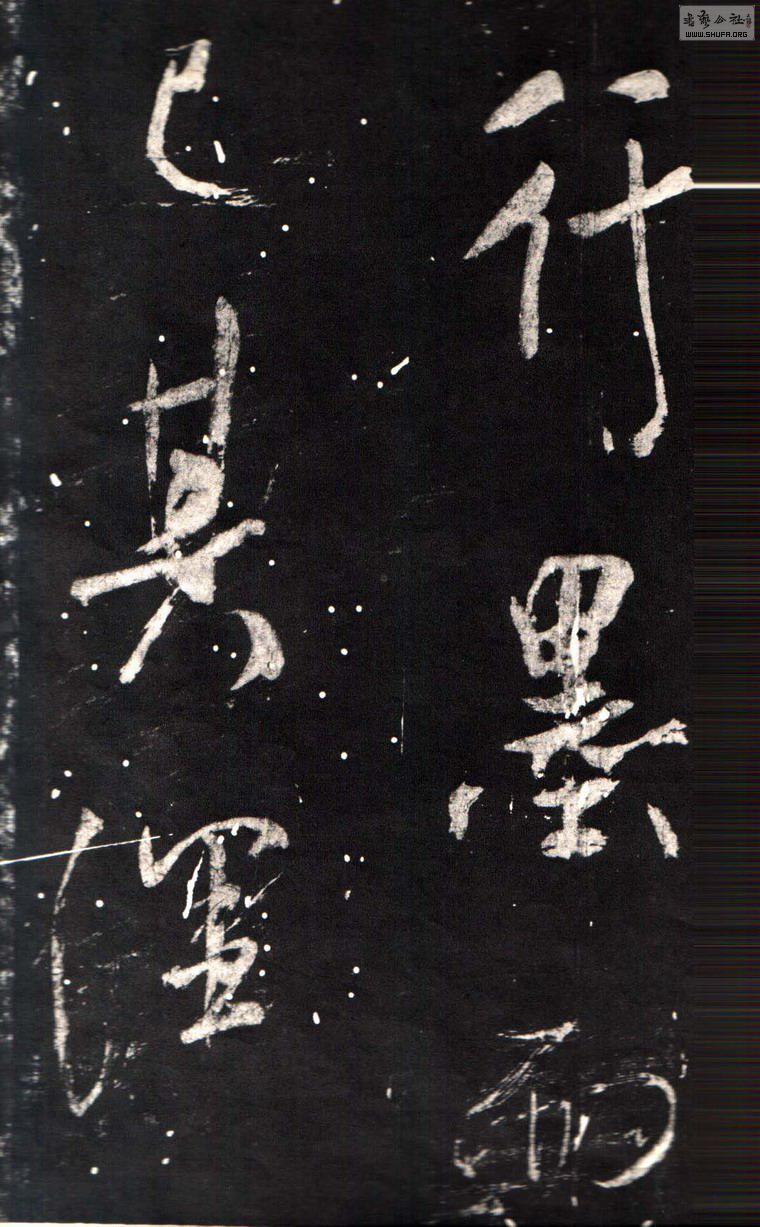 書藝公社
WWW.SHUFA.ORG
行墨而
已其渾